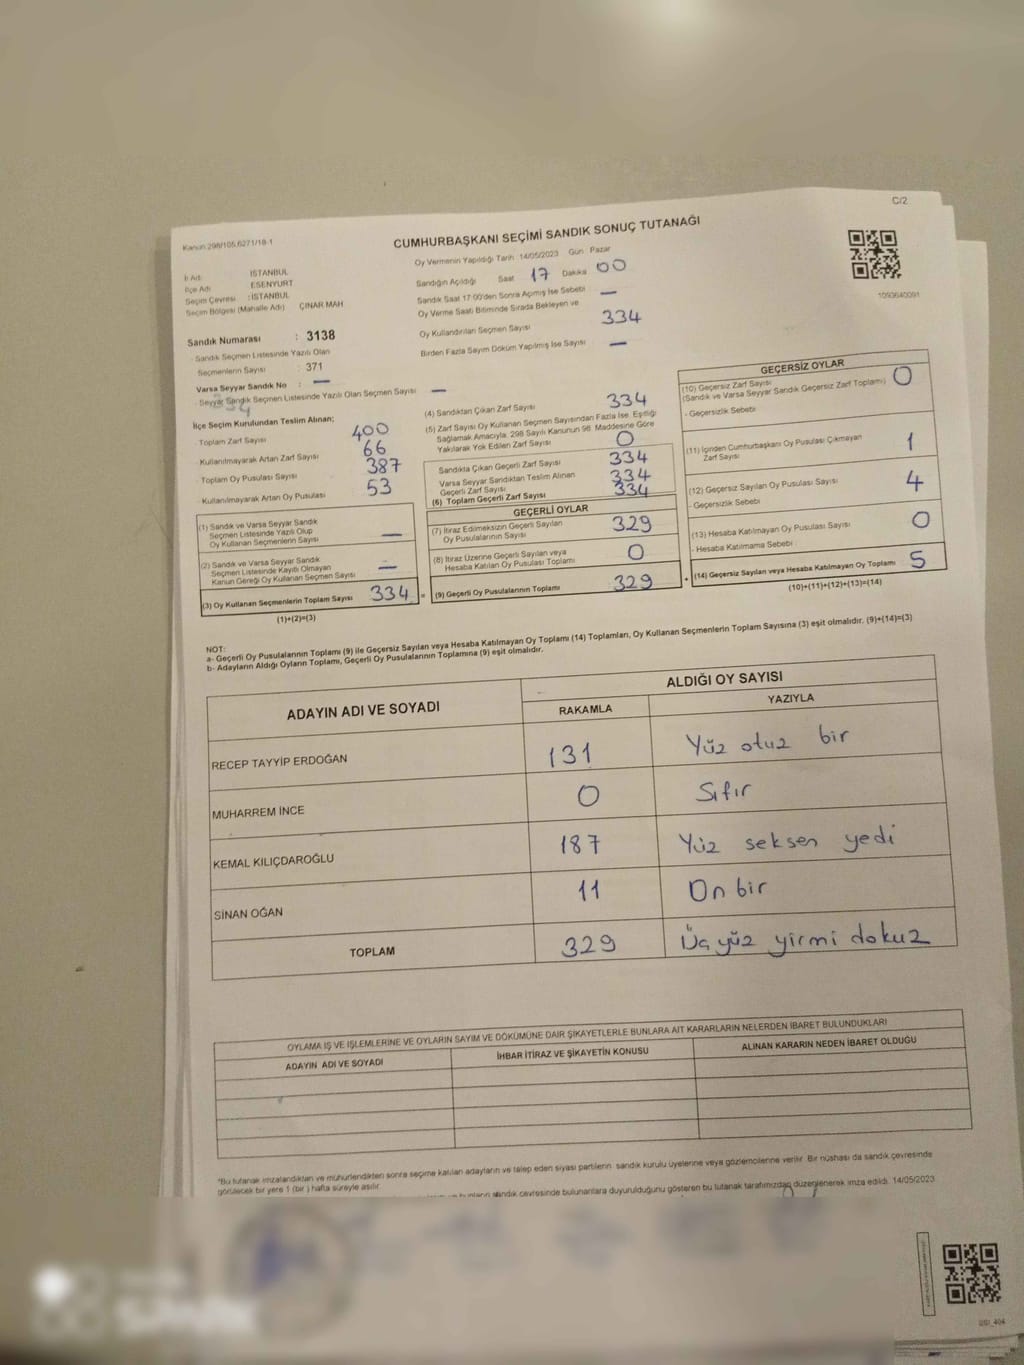 C/2
Kanun 298/105,6271/18-1
CUMHURBAŞKANI SEÇİMİ SANDIK SONUÇ TUTANAĞI
İl Adı : İSTANBUL
İlçe Adı ESENYURT
Seçim Çevresi : İSTANBUL
Seçim Bölgesi (Mahalle Adı) ÇINAR MAH
Oy Vermenin Yapıldığı Tarih :14/05/2023 Gün Pazar
Sandığın Açıldığı Saat 17 Dakika 00
Sandık Saat 17:00'den Sonra Açımış İse Sebebi —
Oy Verme Saati Bitiminde Sırada Bekleyen ve
Oy Kullandırılan Seçmen Sayısı 334
Birden Fazla Sayım Döküm Yapılmış İse Sayısı —
1093640091
Sandık Numarası : 3138
- Sandık Seçmen Listesinde Yazılı Olan
Seçmenlerin Sayısı : 371
Varsa Seyyar Sandık No : —
- Seyyar Sandık Seçmen Listesinde Yazılı Olan Seçmen Sayısı —
334
İlçe Seçim Kurulundan Teslim Alınan;
Toplam Zarf Sayısı 400
- Kullanılmayarak Artan Zarf Sayısı 66
- Toplam Oy Pusulası Sayısı 387
- Kullanılmayarak Artan Oy Pusulası 53
(1) Sandık ve Varsa Seyyar Sandık
Seçmen Listesinde Yazılı Olup
Oy Kullanan Seçmenlerin Sayısı —
(2) Sandık ve Varsa Seyyar Sandık
Seçmen Listesinde Kayıtlı Olmayan
Kanun Gereği Oy Kullanan Seçmen Sayısı —
(3) Oy Kullanan Seçmenlerin Toplam Sayısı 334 =
(1)+(2)=(3)
(4) Sandıktan Çıkan Zarf Sayısı 334
(5) Zarf Sayısı Oy Kullanan Seçmen Sayısından Fazla İse, Eşitliği
Sağlamak Amacıyla, 298 Sayılı Kanunun 98. Maddesine Göre
Yakılarak Yok Edilen Zarf Sayısı 0
Sandıkta Çıkan Geçerli Zarf Sayısı 334
Varsa Seyyar Sandıktan Teslim Alınan
Geçerli Zarf Sayısı 334
(6) Toplam Geçerli Zarf Sayısı 334
GEÇERLİ OYLAR
(7) İtiraz Edilmeksizin Geçerli Sayılan
Oy Pusulalarının Sayısı 329
(8) İtiraz Üzerine Geçerli Sayılan veya
Hesaba Katılan Oy Pusulası Toplamı 0
(9) Geçerli Oy Pusulalarının Toplamı 329 +
GEÇERSİZ OYLAR
(10) Geçersiz Zarf Sayısı 0
(Sandık ve Varsa Seyyar Sandık Geçersiz Zarf Toplamı)
- Geçersizlik Sebebi
(11) İçinden Cumhurbaşkanı Oy Pusulası Çıkmayan
Zarf Sayısı 1
(12) Geçersiz Sayılan Oy Pusulası Sayısı 4
- Geçersizlik Sebebi
(13) Hesaba Katılmayan Oy Pusulası Sayısı 0
- Hesaba Katılmama Sebebi :
(14) Geçersiz Sayılan veya Hesaba Katılmayan Oy Toplamı 5
(10)+(11)+(12)+(13)=(14)
NOT:
a- Geçerli Oy Pusulalarının Toplamı (9) ile Geçersiz Sayılan veya Hesaba Katılmayan Oy Toplamı (14) Toplamları, Oy Kullanan Seçmenlerin Toplam Sayısına (3) eşit olmalıdır. (9)+(14)=(3)
b- Adayların Aldığı Oyların Toplamı, Geçerli Oy Pusulalarının Toplamına (9) eşit olmalıdır.
ADAYIN ADI VE SOYADI ALDIĞI OY SAYISI
RAKAMLA YAZIYLA
RECEP TAYYİP ERDOĞAN 131 Yüz otuz bir
MUHARREM İNCE 0 Sıfır
KEMAL KILIÇDAROĞLU 187 Yüz seksen yedi
SİNAN OĞAN 11 On bir
TOPLAM 329 Üç yüz yirmi dokuz
OYLAMA İŞ VE İŞLEMLERİNE VE OYLARIN SAYIM VE DÖKÜMÜNE DAİR ŞİKAYETLERLE BUNLARA AİT KARARLARIN NELERDEN İBARET BULUNDUKLARI
ADAYIN ADI VE SOYADI İHBAR İTİRAZ VE ŞİKAYETİN KONUSU ALINAN KARARIN NEDEN İBARET OLDUĞU
*Bu tutanak imzalandıktan ve mühürlendikten sonra seçime katılan adayların ve talep eden siyasi partilerin sandık kurulu üyelerine veya gözlemcilerine verilir. Bir nüshası da sandık çevresinde
görülecek bir yere 1 (bir) hafta süreyle asılır.
sandık çevresinde bulunanlara duyurulduğunu gösteren bu tutanak tarafımızdan düzenlenerek imza edildi. 14/05/2023